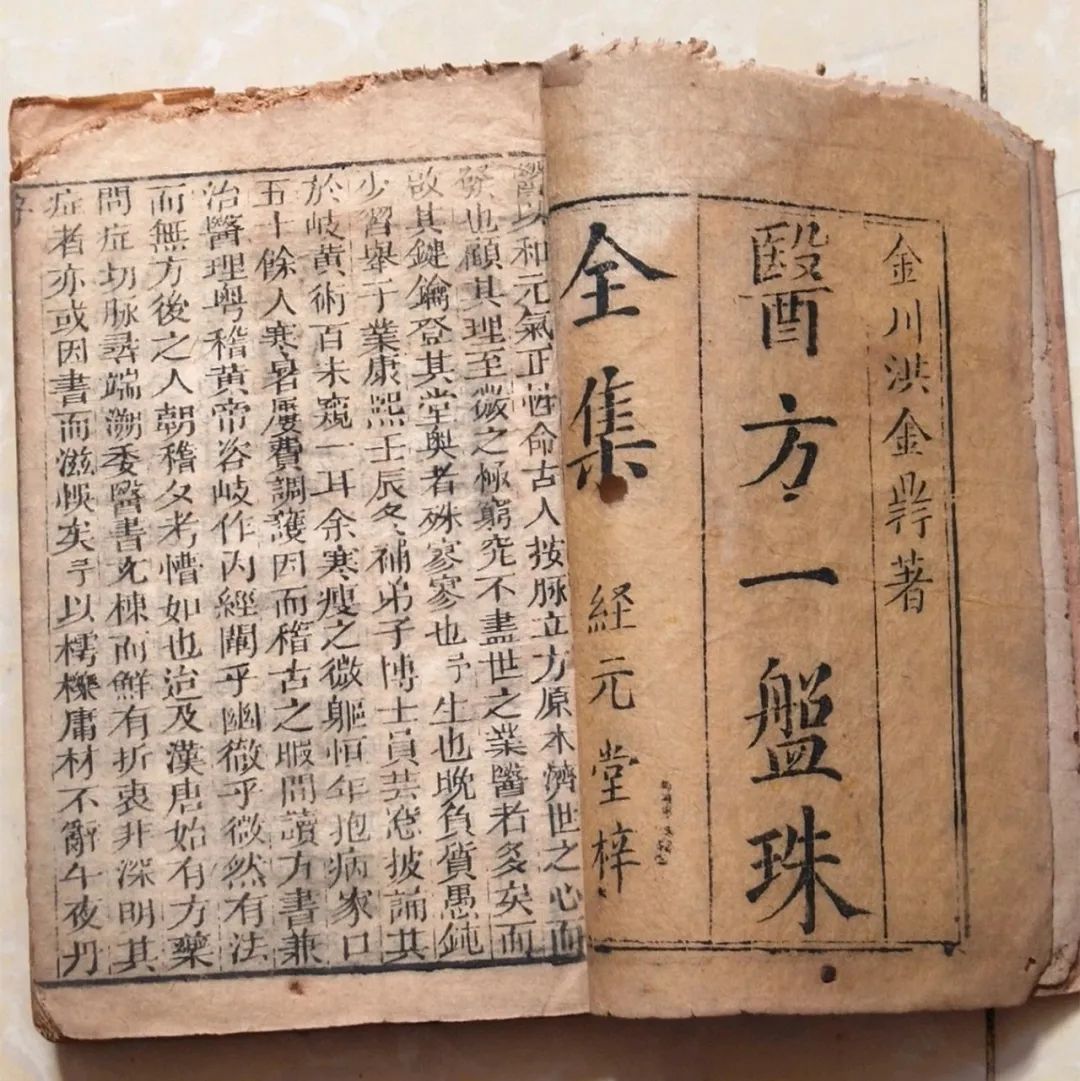 金川洪金鼎著
醫方一盤珠
全集
経元堂梓
醫以和元氣正性命古人按脉立方原本濟世之心而
發也顧其理至微之極窮究不盡世之業醫者多矣而
啟其鍵鑰登其堂奥者殊寥寥也予生也晚負質愚鈍
少習舉子業康熙壬辰冬補弟子博士員芸窓披誦其
於岐黄術百未窺一耳余寒瘦之微軀恒年抱病家口
五十餘人寒暑屢費調護因而稽古之暇間讀方書兼
治醫理粤稽黄帝咨岐作内經闡乎幽徹乎微然有法
而無方後之人朝稽夕考懵如也迨及漢唐始有方藥
問症切脉尋端溯委醫書充棟而鮮有折衷非深明其
症者亦或因書而滋悞矣予以樗櫟庸材不辭午夜丹